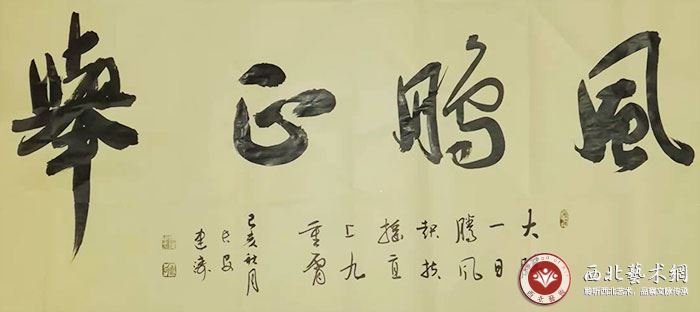 風鵬正舉
大鵬
一日
騰風
起扶
搖直
上九
重霄
己亥秋月
长安
建
西北藝術網
聆听西北艺术，品察文脉传承